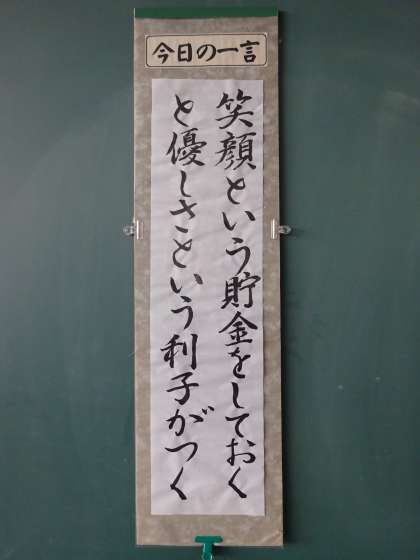 今日の一言
笑顔という貯金をしておく
と優しさという利子がつく